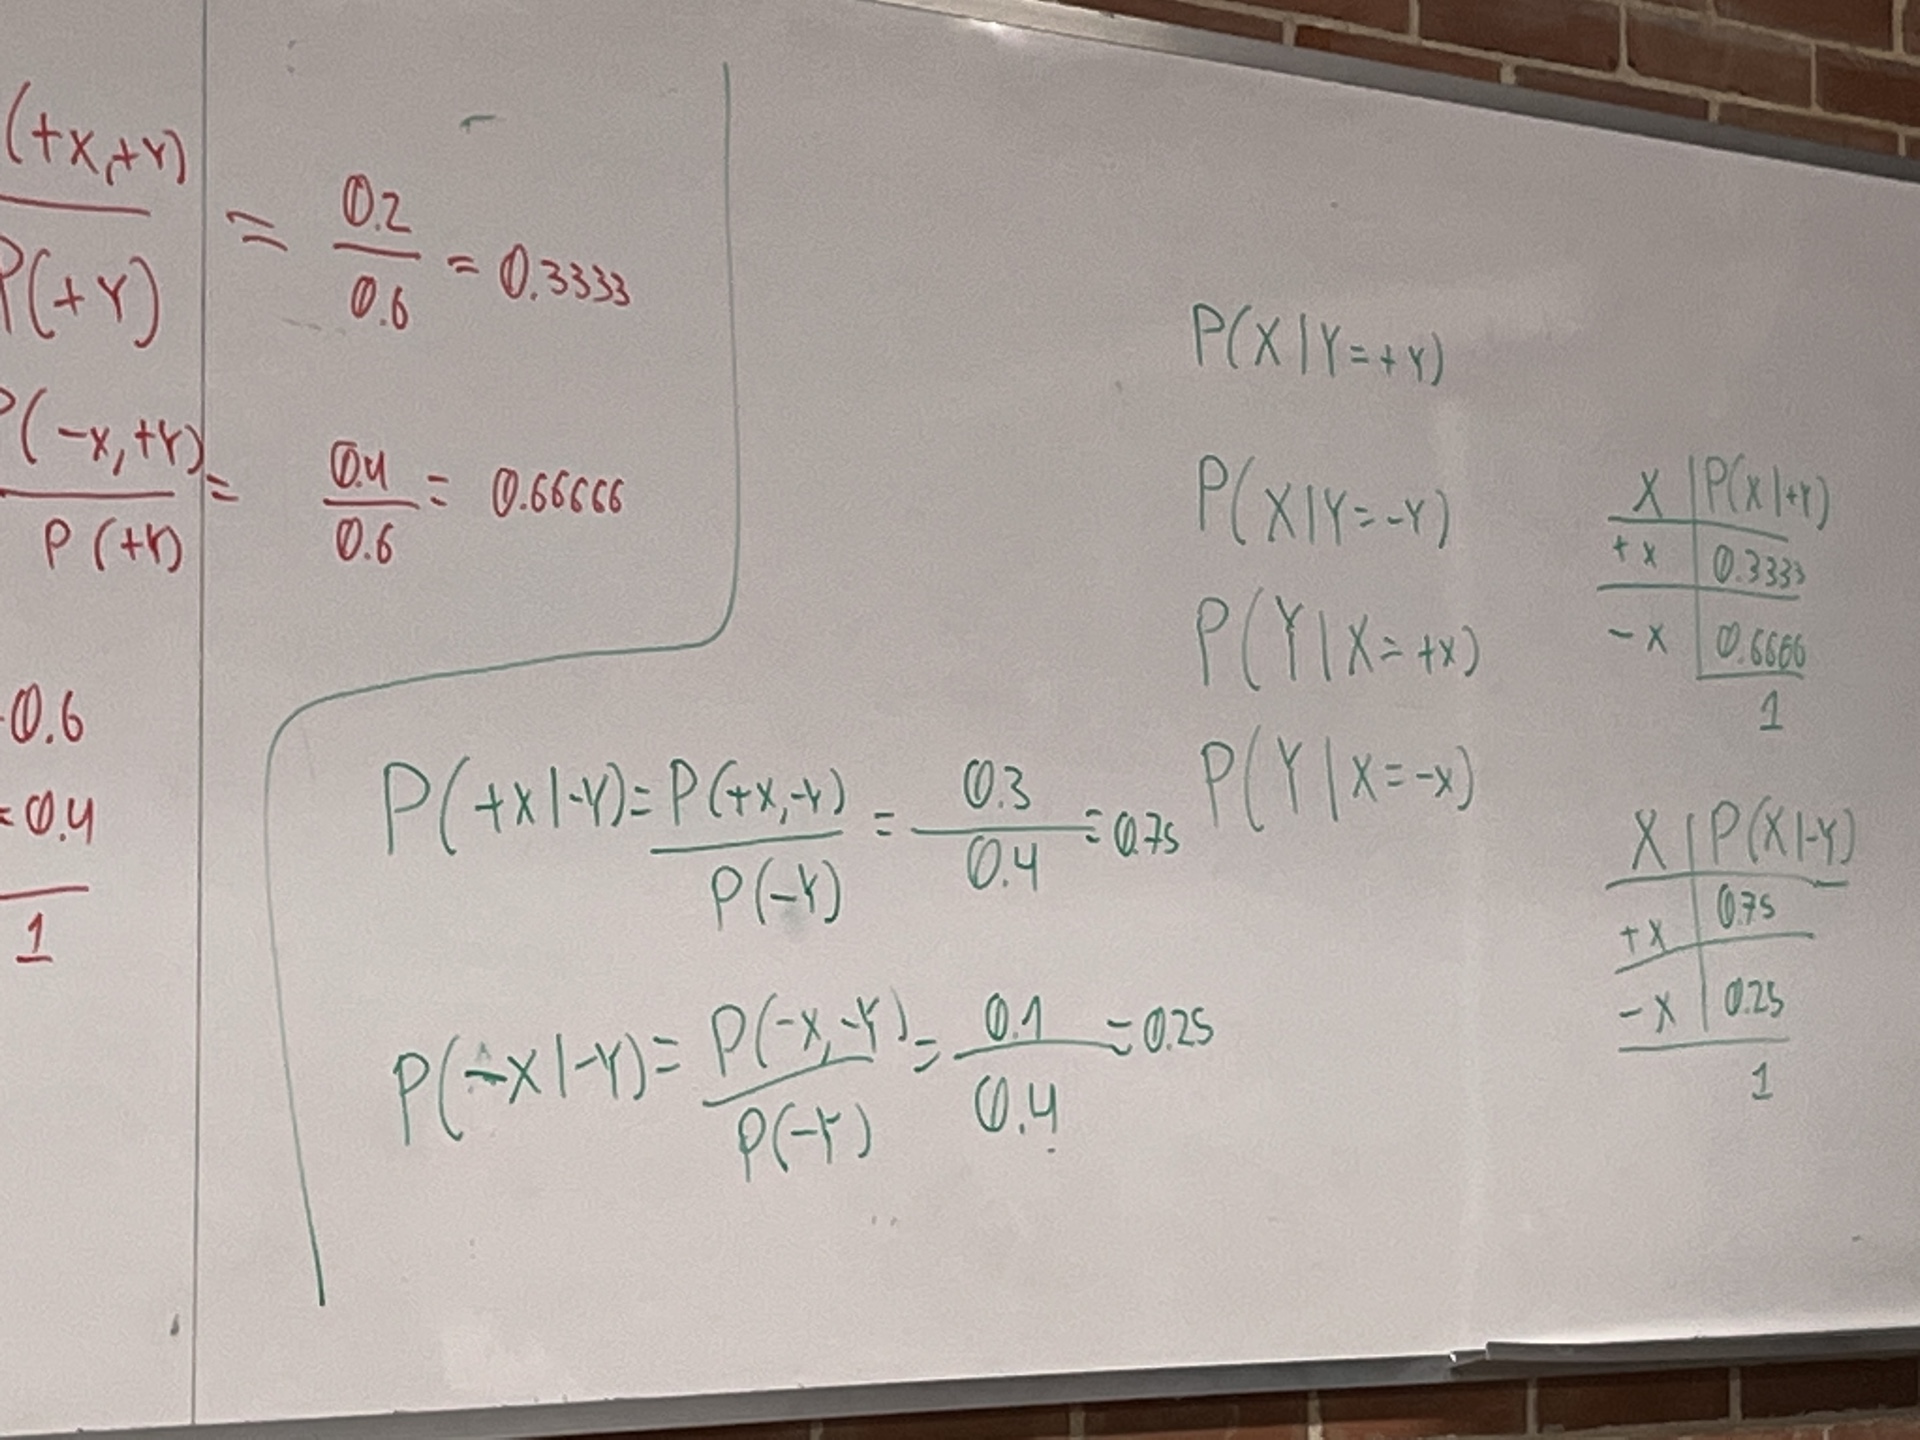 (+x,+Y)
P(+Y)
= 0.2 / 0.6 = 0.3333
P(-x,+Y) / P(+Y) = 0.4 / 0.6 = 0.66666
0.6
= 0.4
1
P(X|Y=+Y)
P(X|Y=-Y)
P(Y|X=+x)
P(Y|X=-x)
P(+x|-Y) = P(+x,-Y) / P(-Y) = 0.3 / 0.4 = 0.75
P(-x|-Y) = P(-x,-Y) / P(-Y) = 0.1 / 0.4 = 0.25
X | P(X|+Y)
+x | 0.3333
-x | 0.6666
1
X | P(X|-Y)
+x | 0.75
-x | 0.25
1